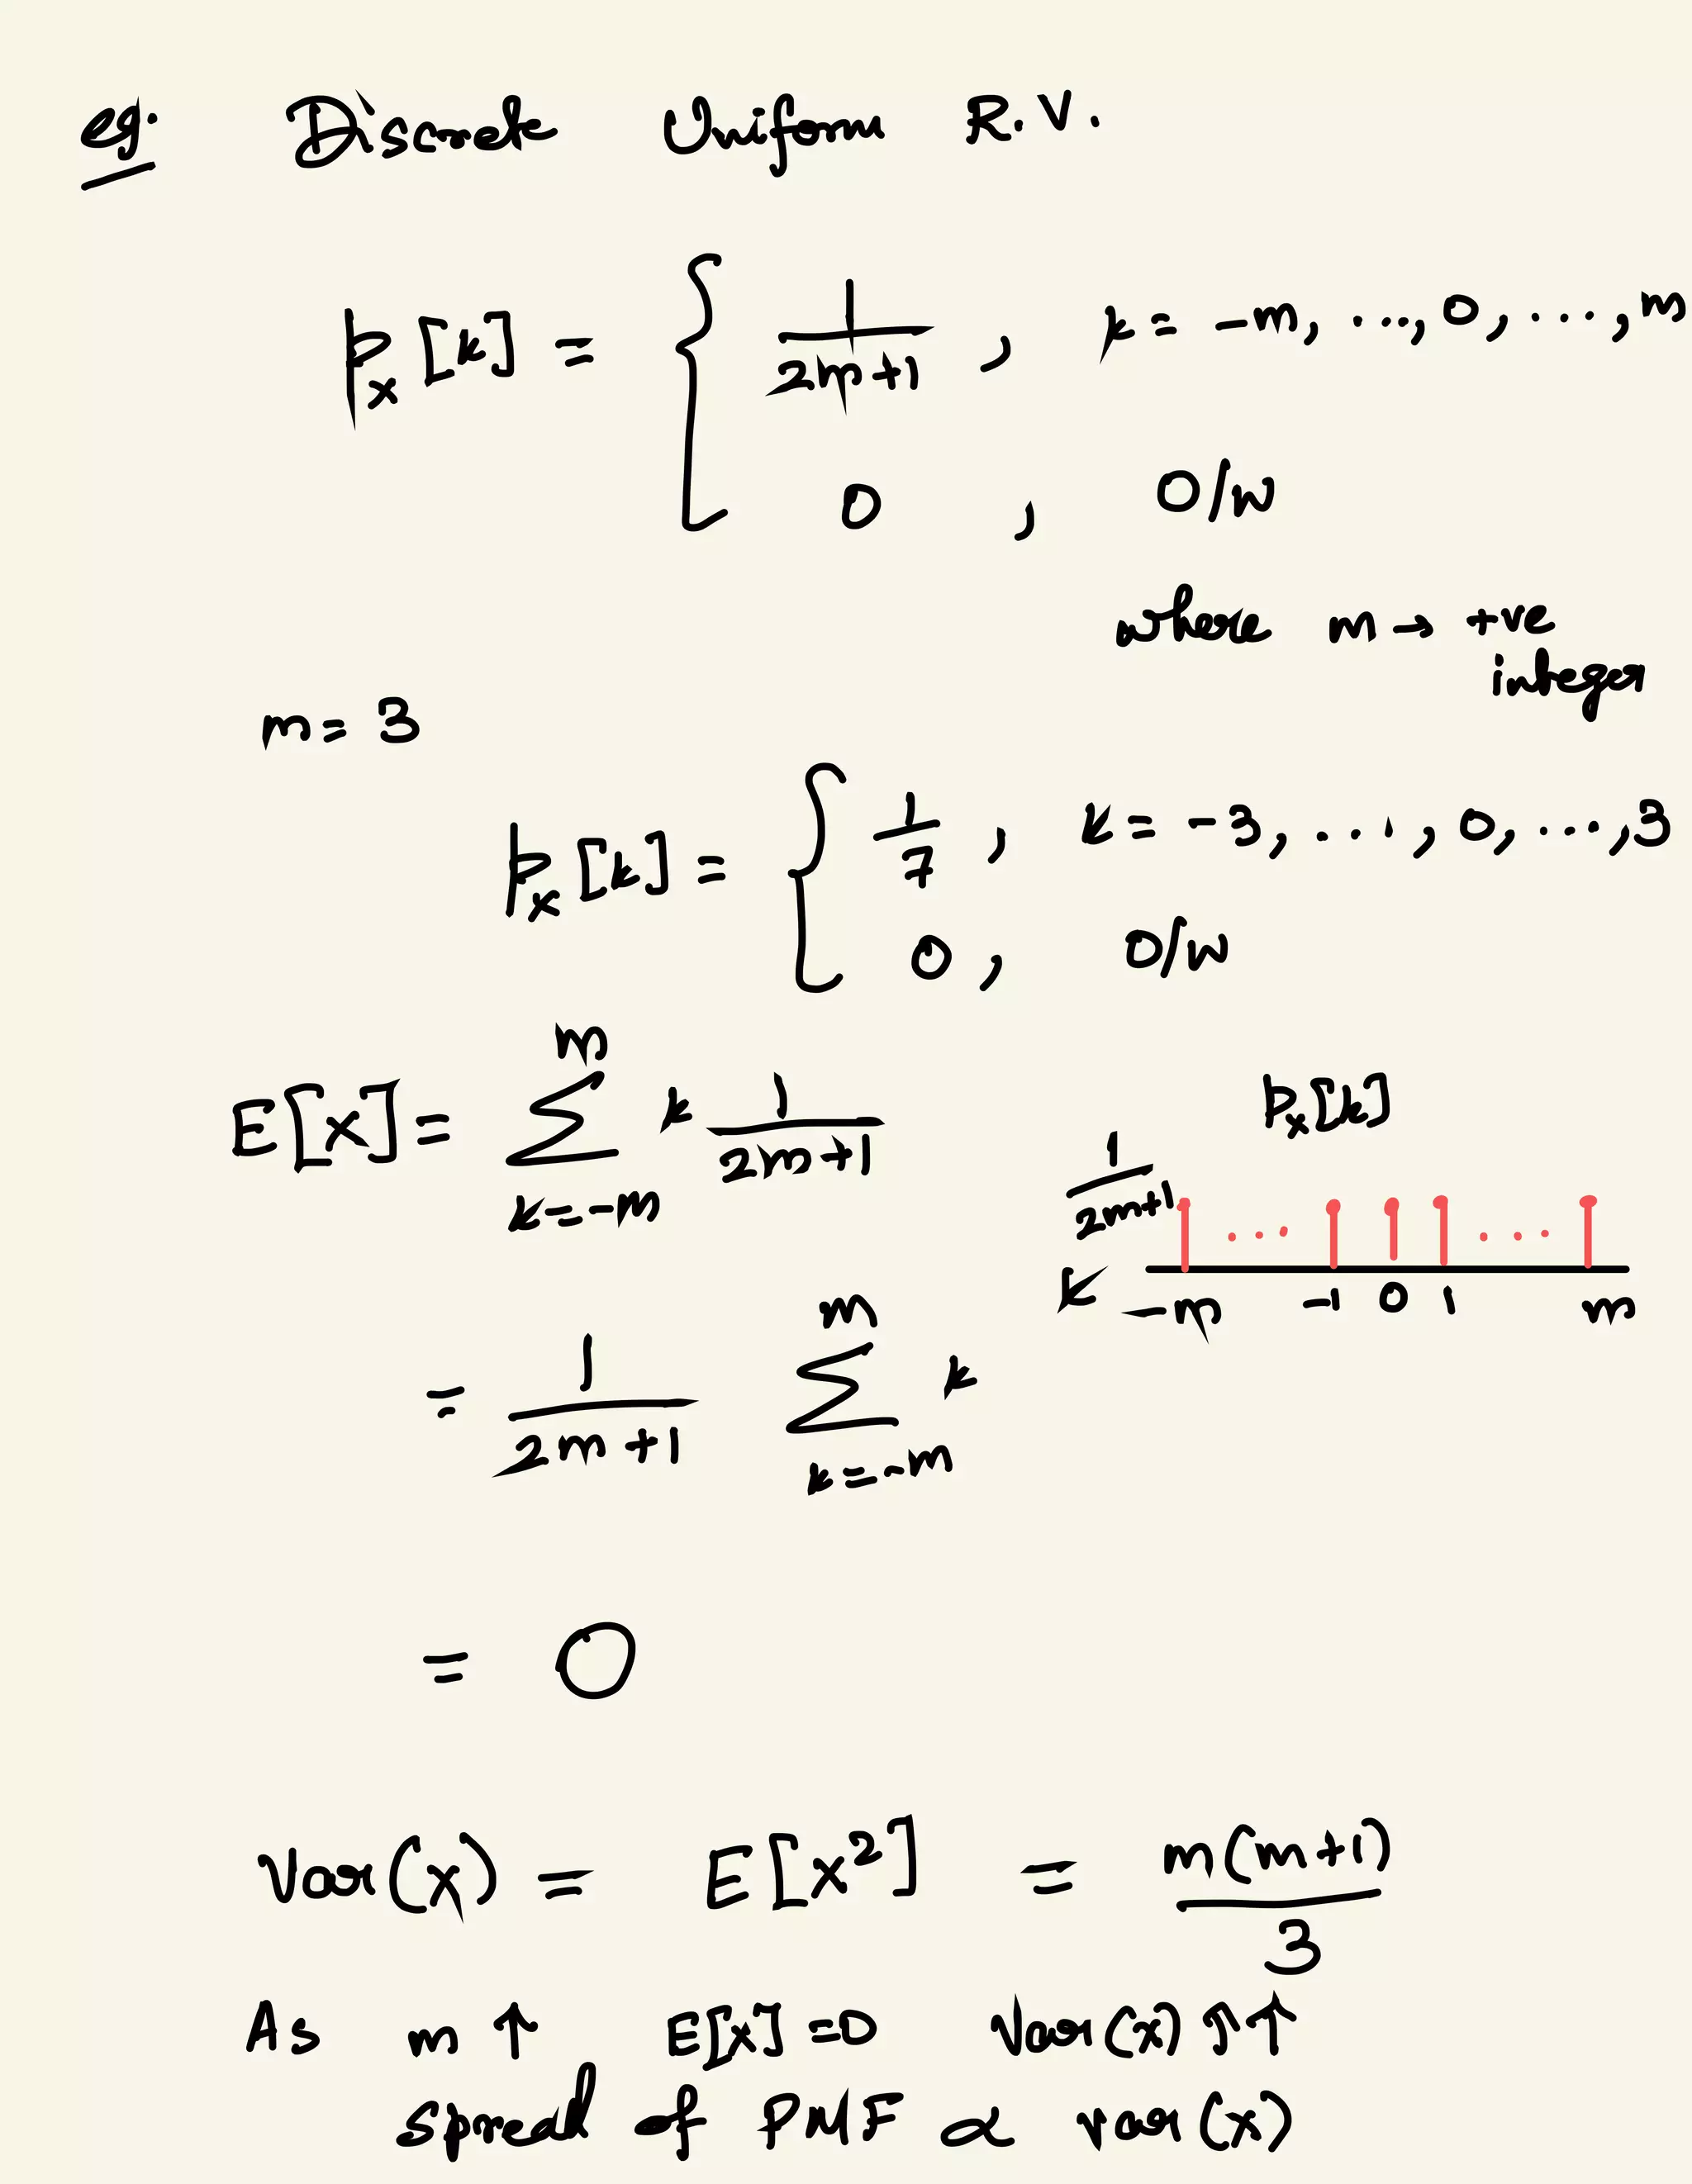 eg. Discrete Uniform R.V.
p_X[k] = { 1/(2m+1) , k = -m, ..., 0, ...., m
0 , O/W
where m → +ve
integer
m = 3
p_X[k] = { 1/7 , k = -3, ..., 0, ..., 3
0 , O/W
E[X] = Σ_{k=-m}^{m} k 1/(2m+1)
p_X[k]
1/(2m+1)
... ...
k -m -1 0 1 m
= 1/(2m+1) Σ_{k=-m}^{m} k
= 0
Var(X) = E[X²] = m(m+1)/3
As m ↑ E[X] = 0 Var(X) ↑↑
spread of PMF α var(X)